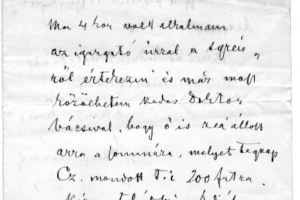 Ma 4 kor volt alkalmam
az igazgató úrral a
ről értekezni és már most
közölhetem kedves Doktor
bácsival, hogy ő is reá állott
arra a summára, melyet tegnap
Cz. mondott t. i. 200 frtra.